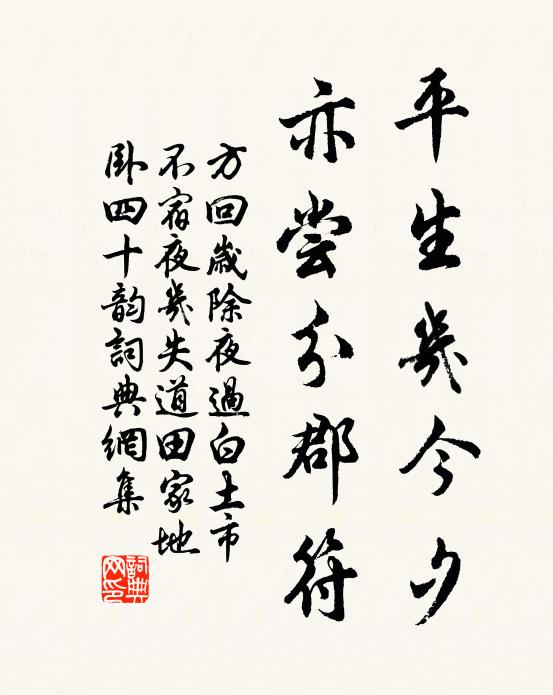 平生幾今夕
亦嘗分郡符
方回歲除夜過白土市
不宿夜幾失道田家地
卧四十韵詞典網集
詞典网印